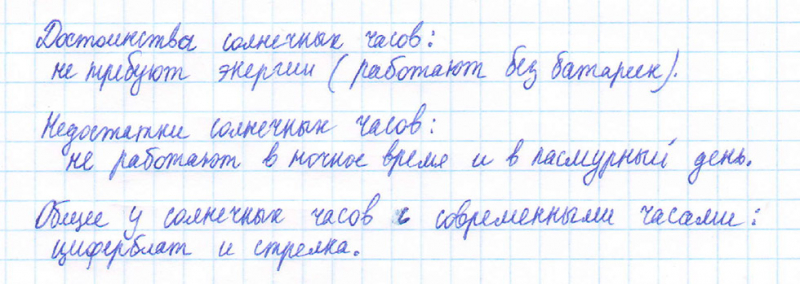 Достоинства солнечных часов:
не требуют энергии (работают без батареек).
Недостатки солнечных часов:
не работают в ночное время и в пасмурный день.
Общее у солнечных часов с современными часами:
циферблат и стрелка.